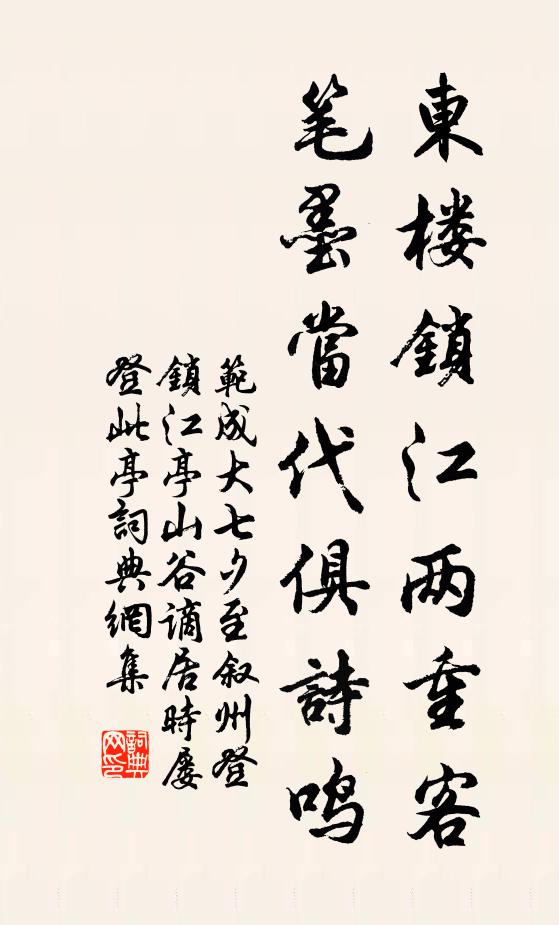 東楼鎖江两重客
笔墨當代俱詩鸣
範成大七夕至叙州登
鎖江亭山谷謫居時屡
登此亭詞典網集
詞典
网印